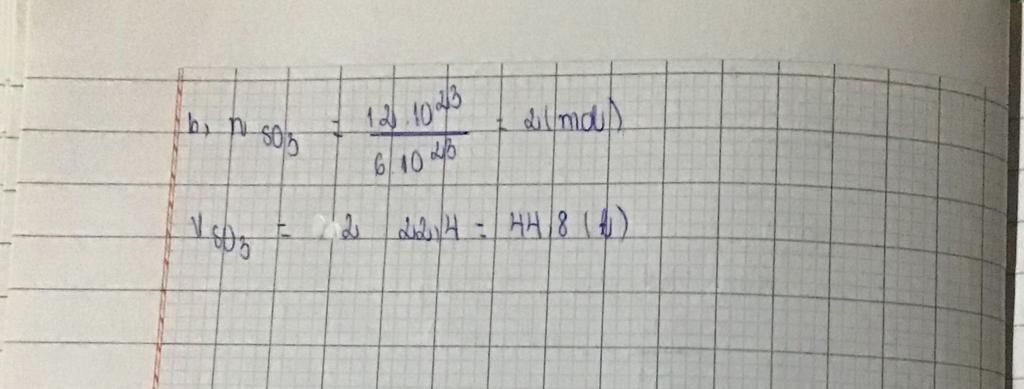 b, n SO₃ = 12.10²³ / 6.10²³ = 2 (mol)
V SO₃ = 2 . 22,4 = 44,8 (l)